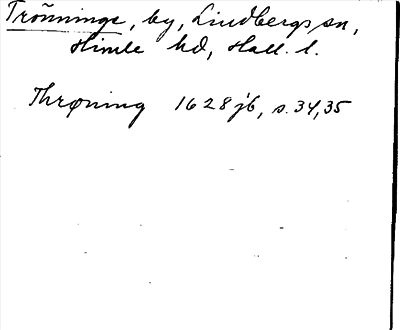 Trönninge, by, Lindbergs sn,
Himle hd, Hall. l.
Thrøning 1628 jb, s. 34, 35